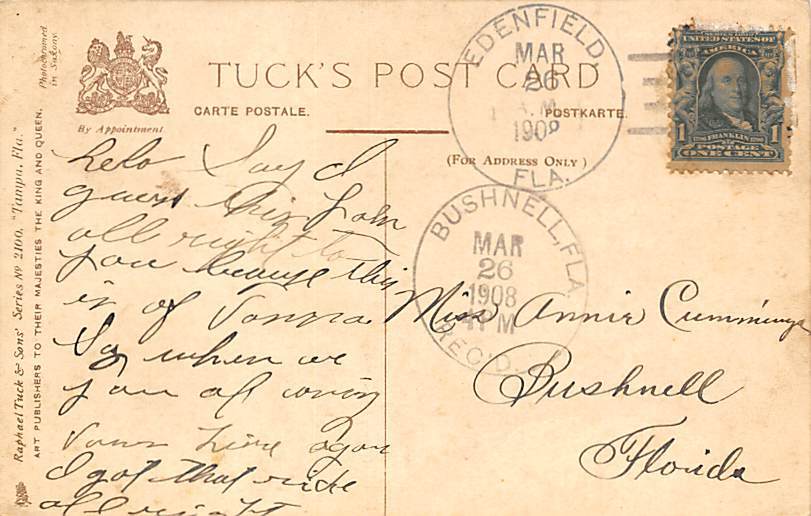 Photochromed
in Saxony.
By Appointment
TUCK'S POST CARD
CARTE POSTALE.
POSTKARTE.
(FOR ADDRESS ONLY)
Raphael Tuck & Sons' Series No 2100, "Tampa, Fla."
ART PUBLISHERS TO THEIR MAJESTIES THE KING AND QUEEN.
EDENFIELD,
MAR
26
A.M.
190
FLA.
SERIES 1902
UNITED STATES OF
AMERICA
1 FRANKLIN 1
POSTAGE
ONE CENT
BUSHNELL, FLA.
MAR
26
1908
PM
REC'D.
Helo Say I
guess this
all right to
you because this
is of
Say when
you
here agan
I got that
all right
Miss Annie Cummings
Bushnell
Florida